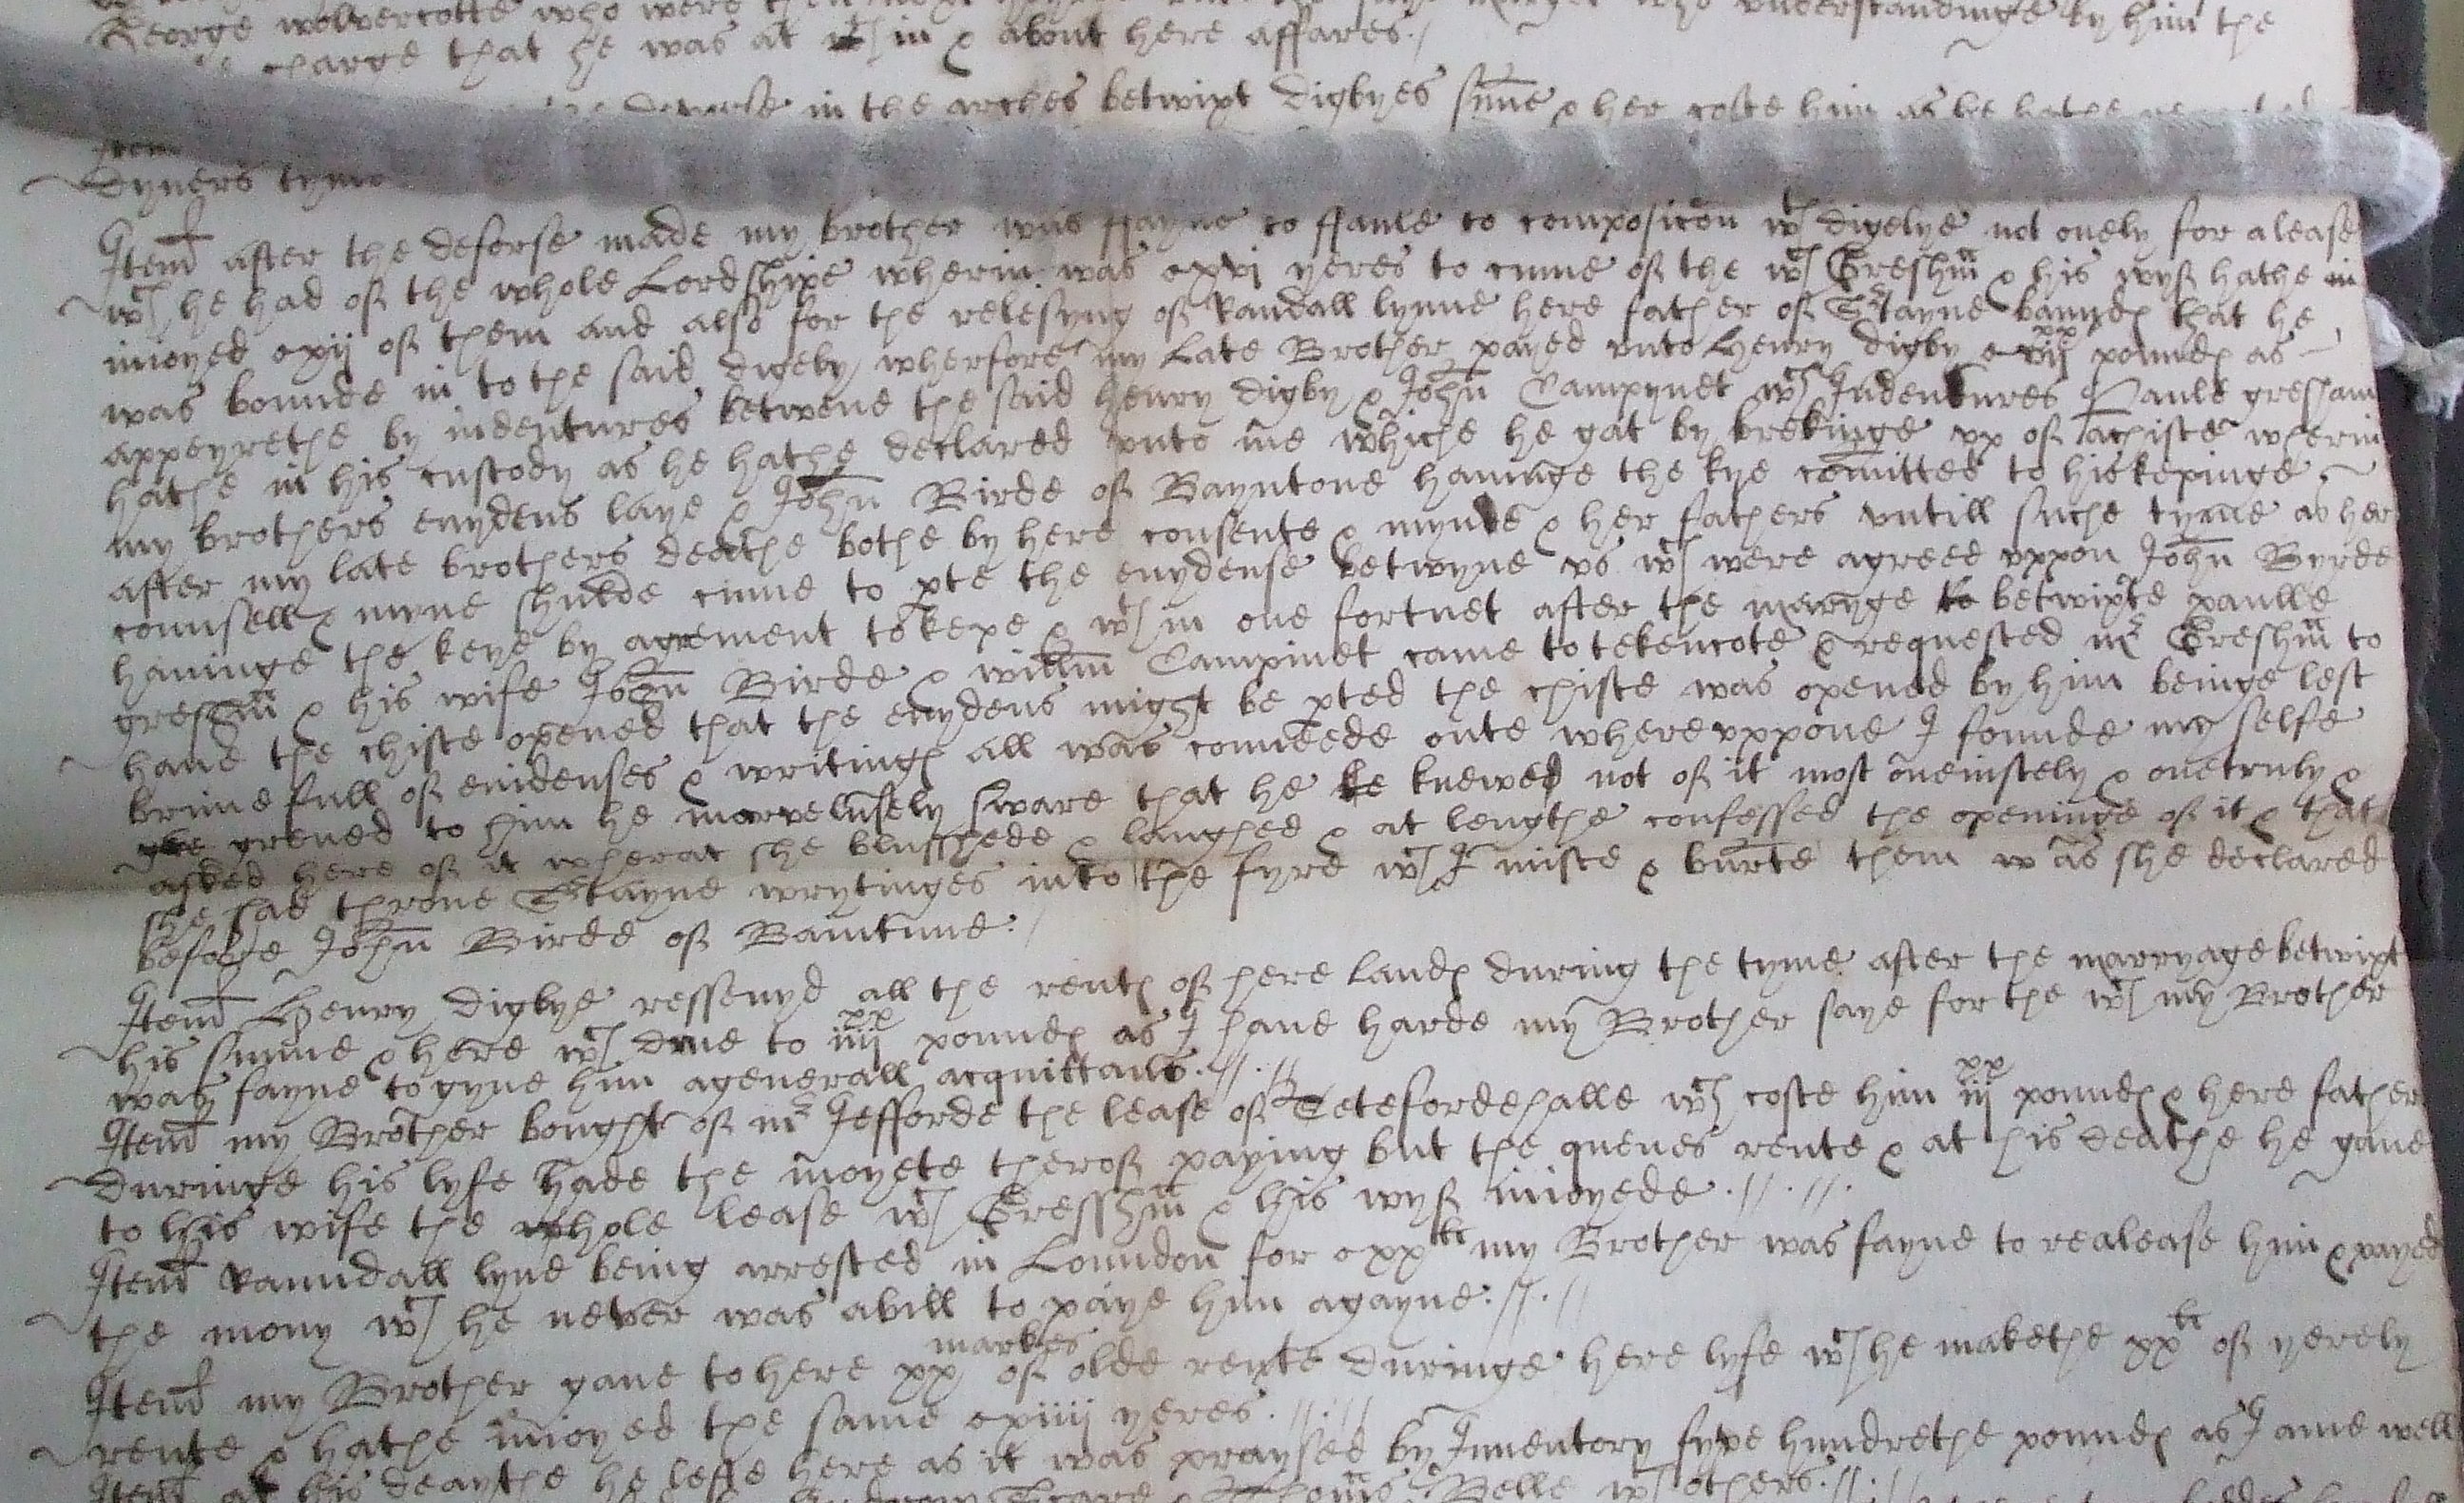 George wolvercotte who were understandinge by him the
charge that he was at wth in & about here affares./
in the arches betwixt digbyes sunne & her coste him as he hathe
Item
Dyvers tyme
Item after the deforse made my brother was ffayne to ffaule to composicon wth digelye not onely for a lease
wch he had of the whole Lordshipe wherin was xxvj yeres to cume of the wch Gresham & his wyf hathe in
inioyed xxij of them and also for the relesyng of Randall lynne here father of Sertayne bandes that he
was bounde in to the said digeby, wherfore my late Brother payed unto Henry digby poundes as
appeyrethe by indentures betwene the said Henry digby & John Campynet wch Indentures Paule gresham
hathe in his custody as he hathe declared unto me whiche he gat by brekinge up of a chiste wherin
my brothers evydens laye & John Birde of Bayntone havinge the kye comitted to his kepinge
after my late brothers deathe bothe by here consente & mynde & her fathers untill suche tyme as her
counsell & myne shulde cume to pte the evydense betwyne us wch were agreed uppon John Byrde
havinge the keye by agrement to kepe & wth in one fortnet after the maryge to betwixte paulle
gresham & his wife John Birde & willm Campinet came to tekencote & requested mr Gresham to
have the chiste opened that the evydens might be pted the chiste was opened by him beinge lest
brime full of evidenses & writinges all was conveede oute whereuppone I founde my selfe
greved to him he marvelusely sware that he knewed not of it most oneiustely & onetruly &
asked here of it wherat she blusshede & laughed & at lengthe confessed the openinge of it & that
she had throne Sertayne wrytinges into the fyre wch I miste & burte them w as she declared
before John Birde of Baintune./
Item Henry digbye ressevyd all the rentes of here landes during the tyme after the marryage betwixt
his sunne & here wch drue to iiij xx poundes as I have harde my Brother saye for the wch my Brother
was fayne to gyve him a generall acquittans.//.//
Item my Brother bought of mr Jefforde the lease of Tetefordehalle wch coste him iij xx poundes & here father
duringe his lyfe hade the moyete therof paying but the quenes rente & at his deathe he gave
to his wife the whole lease wch Gressham & his wyf inioyede.//.//.
Item Raundall lyne being arrested in Loundon for cxx li my Brother was fayne to realease him & payed
the mony wch he never was abill to paye him agayne://.//
Item my Brother gave to here xx markes of olde rente duringe here lyfe wch he makethe xx li of yerely
rente & hathe inioyed the same xiiij yeres.//.//
Item at his deaythe he leffe here as it was praysed by Inventory fyve hundrethe poundes as I ame well
Thoms Belle wth others.//.//